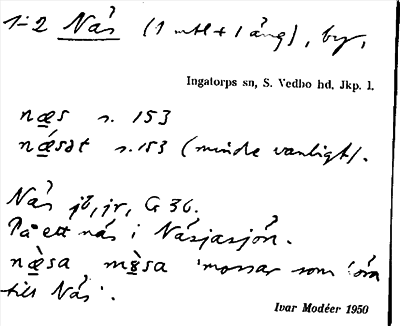 1-2 Näs (1 mtl + 1 äng), by,
Ingatorps sn, S. Vedbo hd, Jkp. l.
næs s. 153
nǽsət s. 153 (mindre vanligt).
Näs jb, jr, G 36.
På ett näs i Näsjasjön.
næ̀sa mɞ̀sa 'mossar som höra
till Näs'.
Ivar Modéer 1950